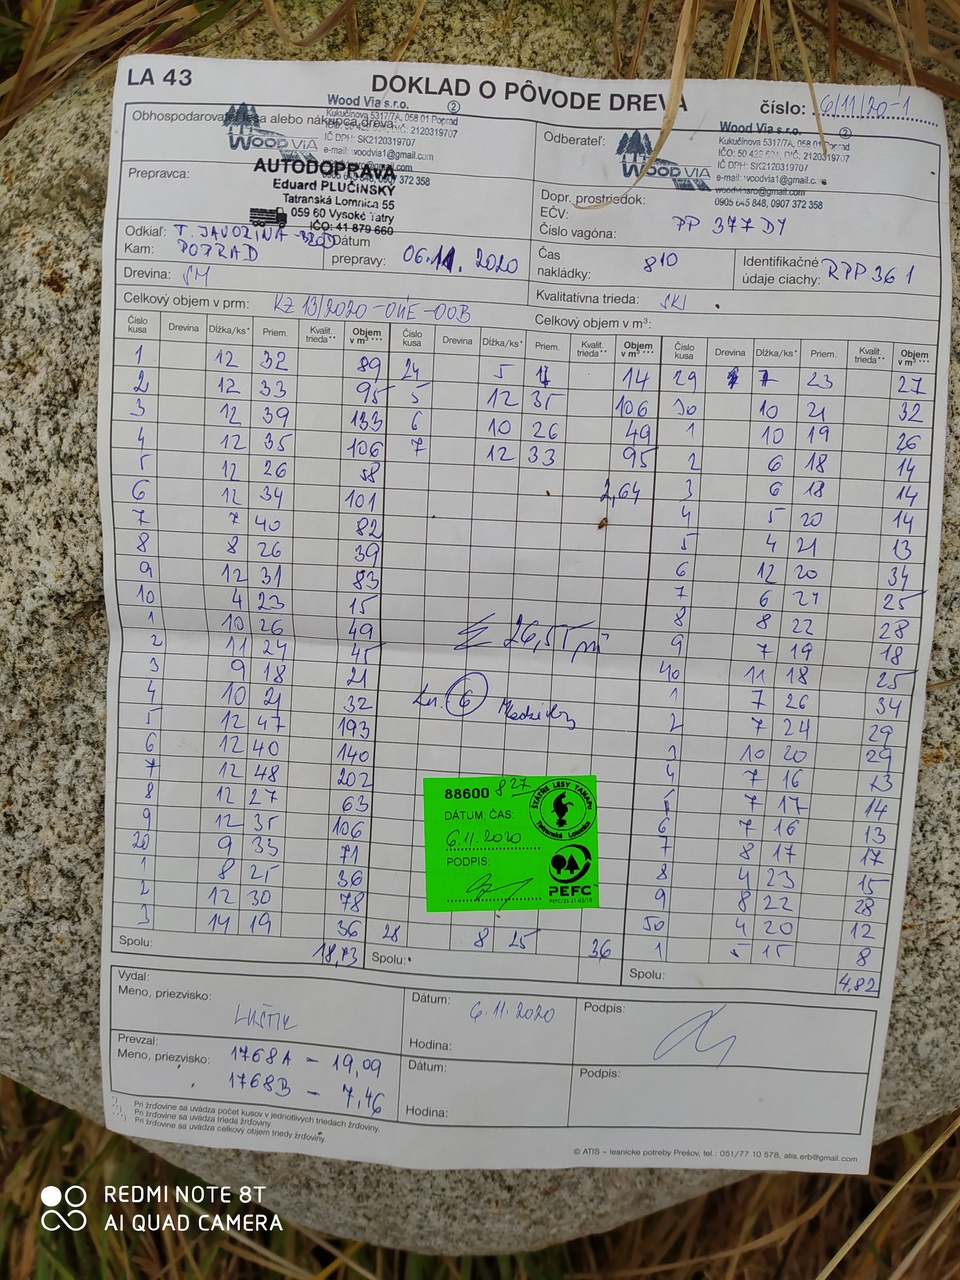 LA 43
DOKLAD O PÔVODE DREVA
číslo: 6/11/20-1
Obhospodarovateľ lesa alebo nákupca dreva:
Wood Via s.r.o. ②
Kukučínova 5317/7A, 058 01 Poprad
DIČ: 2120319707
IČ DPH: SK2120319707
e-mail: woodvia1@gmail.com
0907 372 358
WOOD VIA
Prepravca:
AUTODOPRAVA
Eduard PLUČINSKÝ
Tatranská Lomnica 55
059 60 Vysoké Tatry
IČO: 41 879 660
Odberateľ:
WOOD VIA
Wood Via s.r.o. ②
Kukučínova 5317/7A, 058 01 Poprad
DIČ: 2120319707
IČ DPH: SK2120319707
0905 645 848, 0907 372 358
Dopr. prostriedok:
EČV:
Číslo vagóna: PP 377 DY
Odkiaľ: T. JAVORINA
Kam: POPRAD
Dátum
prepravy: 06.11.2020
Čas
nakládky: 8 10
Identifikačné
údaje ciachy: RPP 361
Drevina: SM
Kvalitatívna trieda:
Celkový objem v prm: KZ 13/2020-04E-00B
Celkový objem v m³:
Číslo kusa Drevina Dĺžka/ks* Priem. Kvalit. trieda** Objem v m³ *** Číslo kusa Drevina Dĺžka/ks* Priem. Kvalit. trieda** Objem v m³ *** Číslo kusa Drevina Dĺžka/ks* Priem. Kvalit. trieda** Objem v m³ ***
1 12 32 89 24 5 17 14 29 7 23 27
2 12 33 95 5 12 35 106 30 10 21 32
3 12 39 133 6 10 26 49 1 10 19 26
4 12 35 106 7 12 33 95 2 6 18 14
5 12 26 58 3 6 18 14
6 12 34 101 2,64 4 5 20 14
7 7 40 82 5 4 21 13
8 8 26 39 6 12 20 34
9 12 31 83 7 6 25
10 4 23 15 8 8 22 28
1 10 26 49 9 7 19 18
2 11 24 45 40 11 18 25
3 9 18 21 1 7 26 34
4 10 21 32 2 7 24 29
5 12 47 193 3 10 20 29
6 12 40 140 4 7 16 13
7 12 48 202 5 7 17 14
8 12 27 63 6 7 16 13
9 12 35 106 7 8 17 17
20 9 33 71 8 4 23 15
1 8 25 36 9 8 22 28
2 12 30 78 50 4 20 12
3 14 19 36 28 8 25 36 1 5 15 8
26,55
6
88600 827
DÁTUM, ČAS:
6.11.2020
PODPIS:
ŠTÁTNE LESY TANAPU
Tatranská Lomnica
PEFC™
Spolu: 18,73
Spolu:
Spolu: 4,82
Vydal:
Meno, priezvisko: LUŠTIK
Dátum: 6.11.2020
Hodina:
Podpis:
Prevzal:
Meno, priezvisko: 1768A - 19,09
1768B - 7,46
Dátum:
Hodina:
Podpis:
Pri žrďovine sa uvádza počet kusov v jednotlivých triedach žrďoviny.
Pri žrďovine sa uvádza trieda žrďoviny.
Pri žrďovine sa uvádza celkový objem triedy žrďoviny.
© ATIS – lesnícke potreby Prešov, tel.: 051/77 10 578, atis.erb@gmail.com
REDMI NOTE 8T
AI QUAD CAMERA